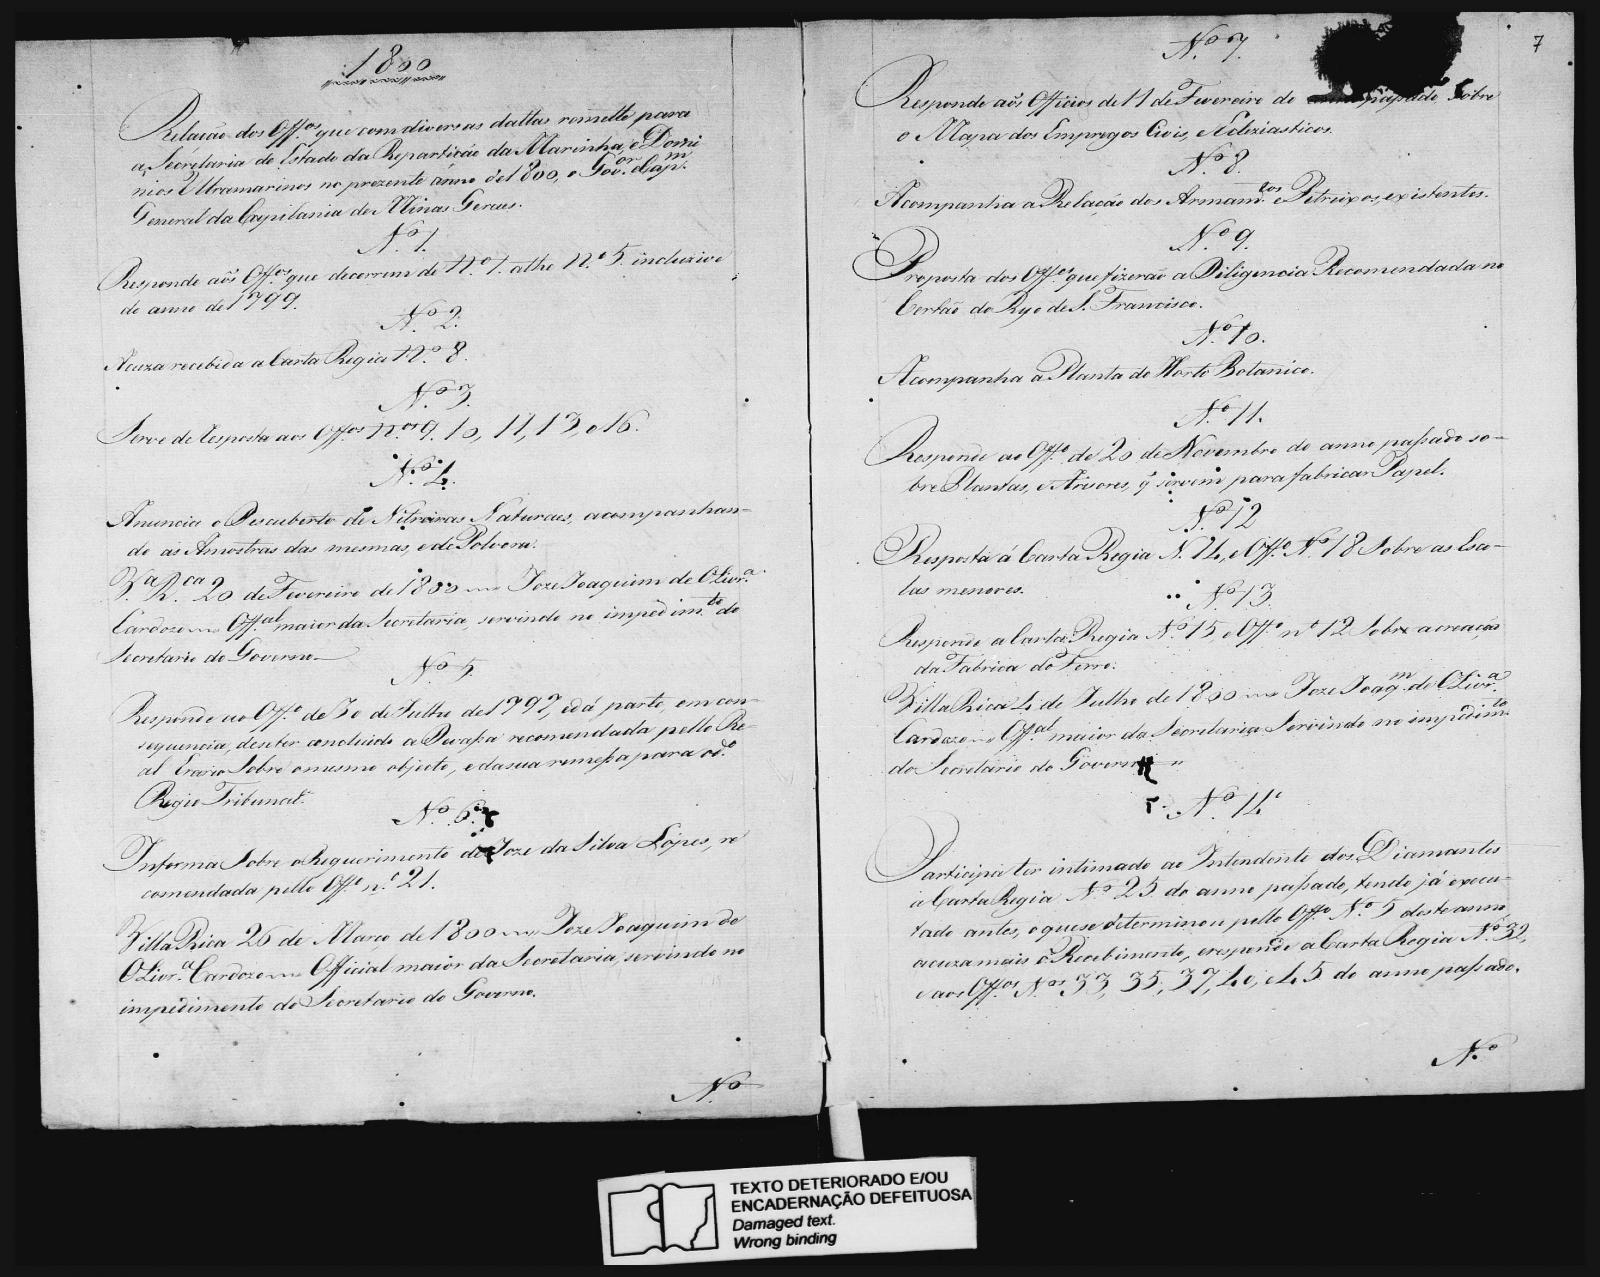 1800
Relacão dos Off.os que com diversas dattas remetto para
a Secretaria de Estado da Reparticão da Marinha, e Domi
nios Ultramarinos no prezente anno de 1800, o Gov.or e Cap.m
General da Capitania de Minas Geraes.
N.o 1.
Responde aôs Off.os que decorrem de N.o 1. athe N.o 5 incluzive
do anno de 1799.
N.o 2.
Acuza recebida a Carta Regia N.o 8.
N.o 3.
Serve de Resposta aos Off.os N.os 9. 10, 11, 13, e 16.
N.o 4.
Anuncia o Descuberto de Nitreiras Naturaes, acompanhan-
do as Amostras das mesmas, e de Polvora.
V.a R.ca 20 de Fevereiro de 1800 Joze Joaquim de Olivr.a
Cardozo Off.al maior da Secretaria servindo no impedim.to do
Secretario do Governo
N.o 5
Responde ao Off.o de 30 de Julho de 1797, e dá parte, em con-
sequencia, de se ter concluido a Devaſsa recomendada pello Re-
al Erario Sobre o mesmo objecto, e da sua remeſsa para o d.o
Regio Tribunal.
N.o 6.
Informa Sobre o Requerimento de Joze da Silva Lopes, re
comendada pello Off.o n.o 21.
Villa Rica 26 de Marco de 1800 Joze Joaquim de
Olivr.a Cardozo Official maior da Secretaria, servindo no
impedimento do Secretario do Governo.
N.o
7
N.o 7.
Responde aôs Officios de 11 de Fevereiro do paſsado Sobre
o Mapa dos Empregos Civis, e Ecleziasticos.
N.o 8.
Acompanha a Relacão dos Armam.tos e Petrexos, existentes.
N.o 9.
Proposta dos Off.es que fizerão a Diligencia Recomendada no
Certão do Ryo de S. Francisco.
N.o 10.
Acompanha a Planta do Horto Botanico.
N.o 11.
Responde ao Off.o de 20 de Novembro do anno paſsado so-
bre Plantas, e Arvores, q̃ servem para fabricar Papel.
N.o 12
Resposta á Carta Regia N. 14, e Off.o N.o 18 Sobre as Esco-
las menores.
N.o 13.
Responde a Carta Regia N.o 15 e Off.o n.o 12 Sobre a creação
da Fabrica do Ferro.
Villa Rica 4 de Julho de 1800 Joze Joaq.m de Olivr.a
Cardozo Off.al maior da Secretaria Servindo no impedim.to
do Secretario do Governo
N.o 14
Participa ter intimado ao Intendente dos Diamantes
a Carta Regia N.o 25 do anno paſsado, tendo já execu-
tado antes, o que se determinou pello Off.o N.o 5 deste anno
acuza mais o Recebimento, e responde a Carta Regia N.o 32,
e aos Off.os N.os 33, 35, 37, 40, e 45 do anno paſsado.
N.o
TEXTO DETERIORADO E/OU
ENCADERNAÇÃO DEFEITUOSA
Damaged text.
Wrong binding